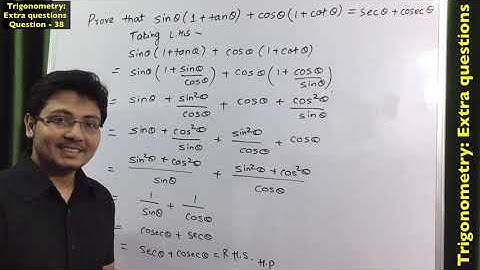 Trigonometry:
Extra questions
Question - 38
Prove that sinθ(1+tanθ) + cosθ(1+cotθ) = secθ+cosecθ
Taking L.H.S -
sinθ(1+tanθ) + cosθ(1+cotθ)
= sinθ(1+sinθ/cosθ) + cosθ(1+cosθ/sinθ)
= sinθ + sin²θ/cosθ + cosθ + cos²θ/sinθ
= sinθ + cos²θ/sinθ + sin²θ/cosθ + cosθ
= sin²θ+cos²θ/sinθ + sin²θ+cos²θ/cosθ
= 1/sinθ + 1/cosθ
= cosecθ + secθ
= secθ + cosecθ = R.H.S. H.P
Trigonometry: Extra questions